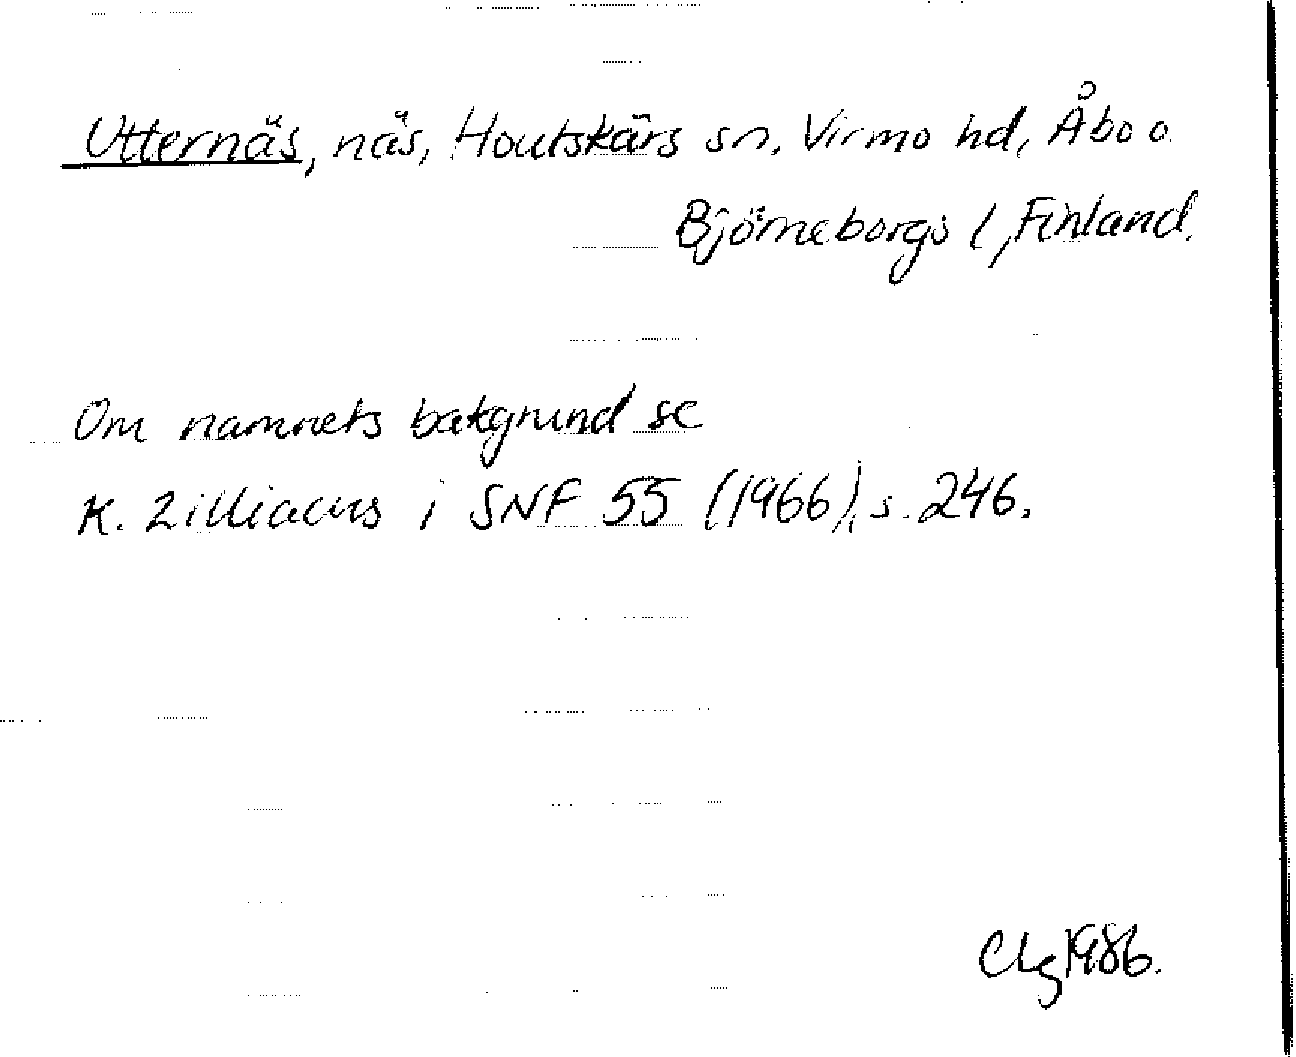 Utternäs, näs, Houtskärs sn, Virmo hd, Åbo o.
Björneborgs l, Finland.
Om namnets bakgrund se
K. Zilliacus i SNF 55 (1966), s. 246.
CLg 1986.